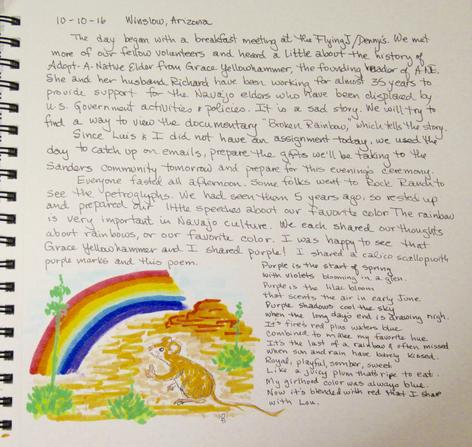 10-10-16 Winslow, Arizona
The day began with a breakfast meeting at the Flying J/Denny's. We met
more of our fellow volunteers and heard a little about the history of
Adopt-A-Native Elder from Grace Yellowhammer, the founding leader of ANE.
She and her husband, Richard have been working for almost 35 years to
provide support for the Navajo elders who have been displaced by
U.S. Government activities & policies. It is a sad story. We will try to
find a way to view the documentary "Broken Rainbow," which tells the story.
Since Luis & I did not have an assignment today, we used the
day to catch up on emails, prepare the gifts we'll be taking to the
Sanders community tomorrow and prepare for this evening's ceremony.
Everyone fasted all afternoon. Some folks went to Rock Ranch to
see the petroglyphs. We had seen them 5 years ago, so rested up
and prepared our little speeches about our favorite color. The rainbow
is very important in Navajo culture. We each shared our thoughts
about rainbows, or our favorite color. I was happy to see that
Grace Yellowhammer and I shared purple! I shared a calico scallop with
purple marks and this poem.
Purple is the start of spring
with violets blooming in a glen.
Purple is the lilac bloom
that scents the air in early June.
Purple shadows cool the sky
when the long day's end is drawing nigh.
It's fire's red plus waters blue
combined to make my favorite hue.
It's the last of a rainbow & often missed
when sun and rain have barely kissed.
Royal, playful, somber, sweet
Like a juicy plum that's ripe to eat.
My girlhood color was always blue.
Now it's blended with red that I share
with Lou.